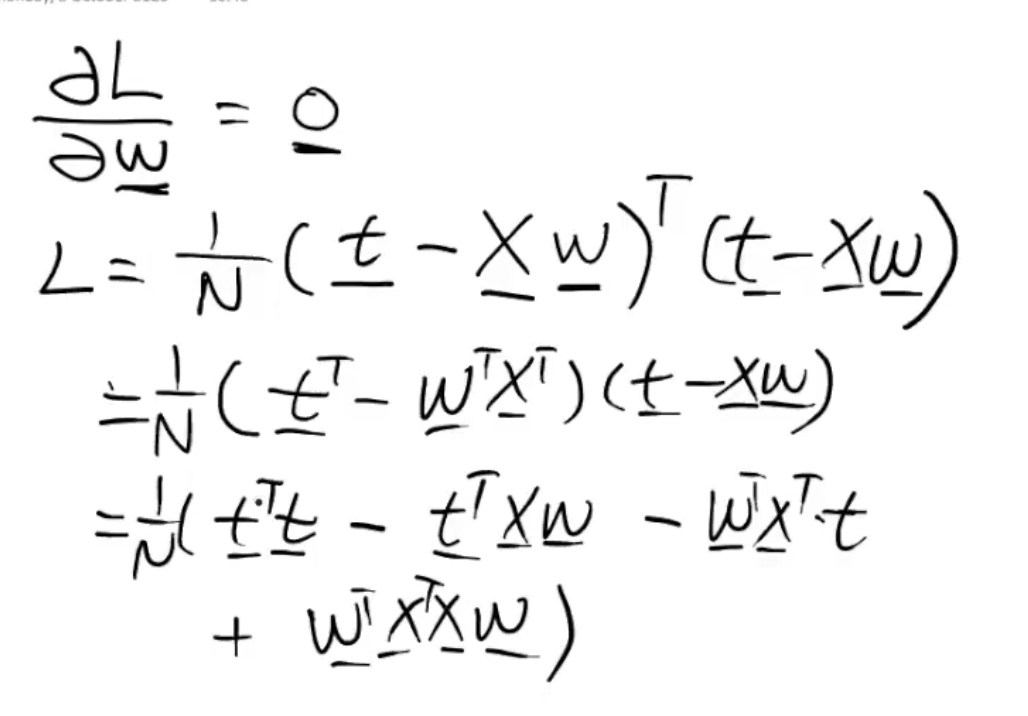 ∂L/∂w = 0
L = 1/N (t - Xw)ᵀ (t - Xw)
= 1/N (tᵀ - wᵀXᵀ)(t - Xw)
= 1/N (tᵀt - tᵀXw - wᵀXᵀt
+ wᵀXᵀXw)